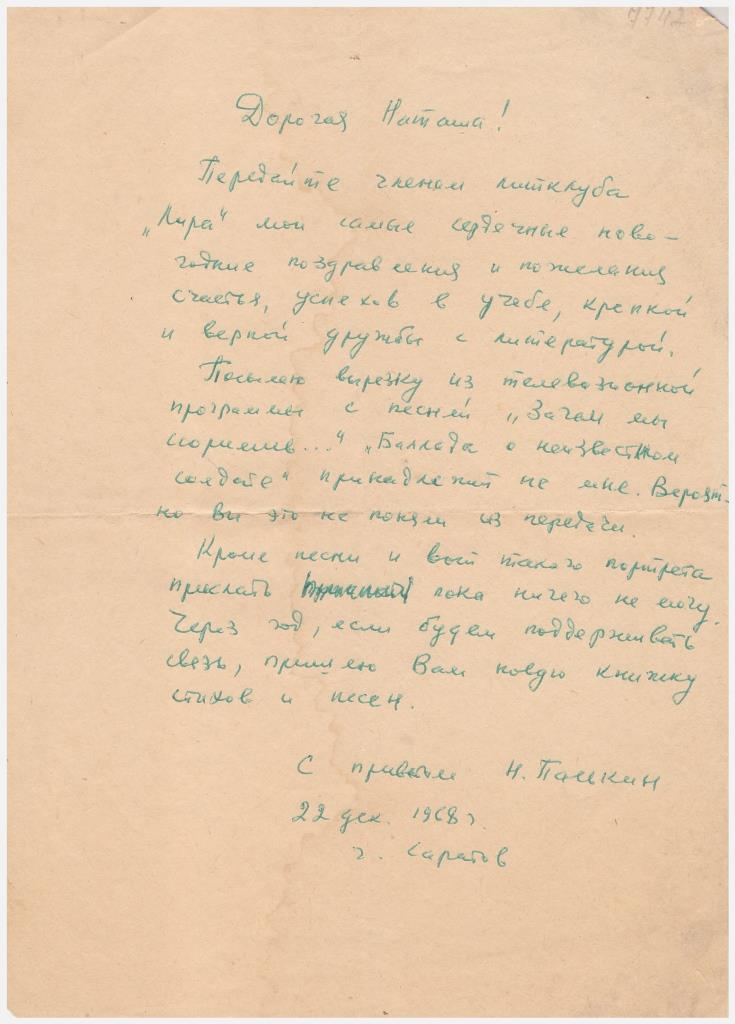 7742
Дорогая Наташа!
Передайте членам литклуба
„Лира“ мои самые сердечные ново-
годние поздравления и пожелания
счастья, успехов в учебе, крепкой
и верной дружбы с литературой.
Посылаю вырезку из телевизионной
программы с песней „Зачем мы
“ „Баллада о неизвестном
солдате“ принадлежит не мне. Вероят-
но вы это не поняли из передачи.
Кроме песни и вот такого портрета
прислать пока ничего не могу.
Через год, если будем поддерживать
связь, пришлю Вам новую книжку
стихов и песен.
С приветом Н. Палькин
22 дек. 1968 г.
г. Саратов